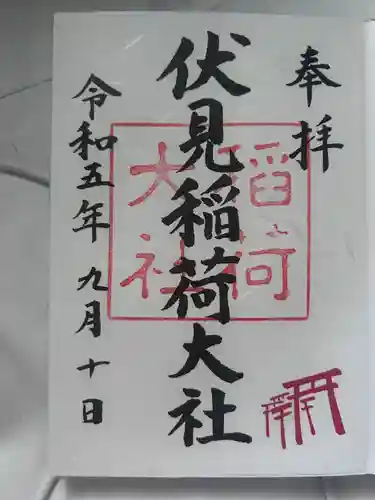 奉拝
伏見稲荷大社
稲荷
大社
令和五年 九月十日